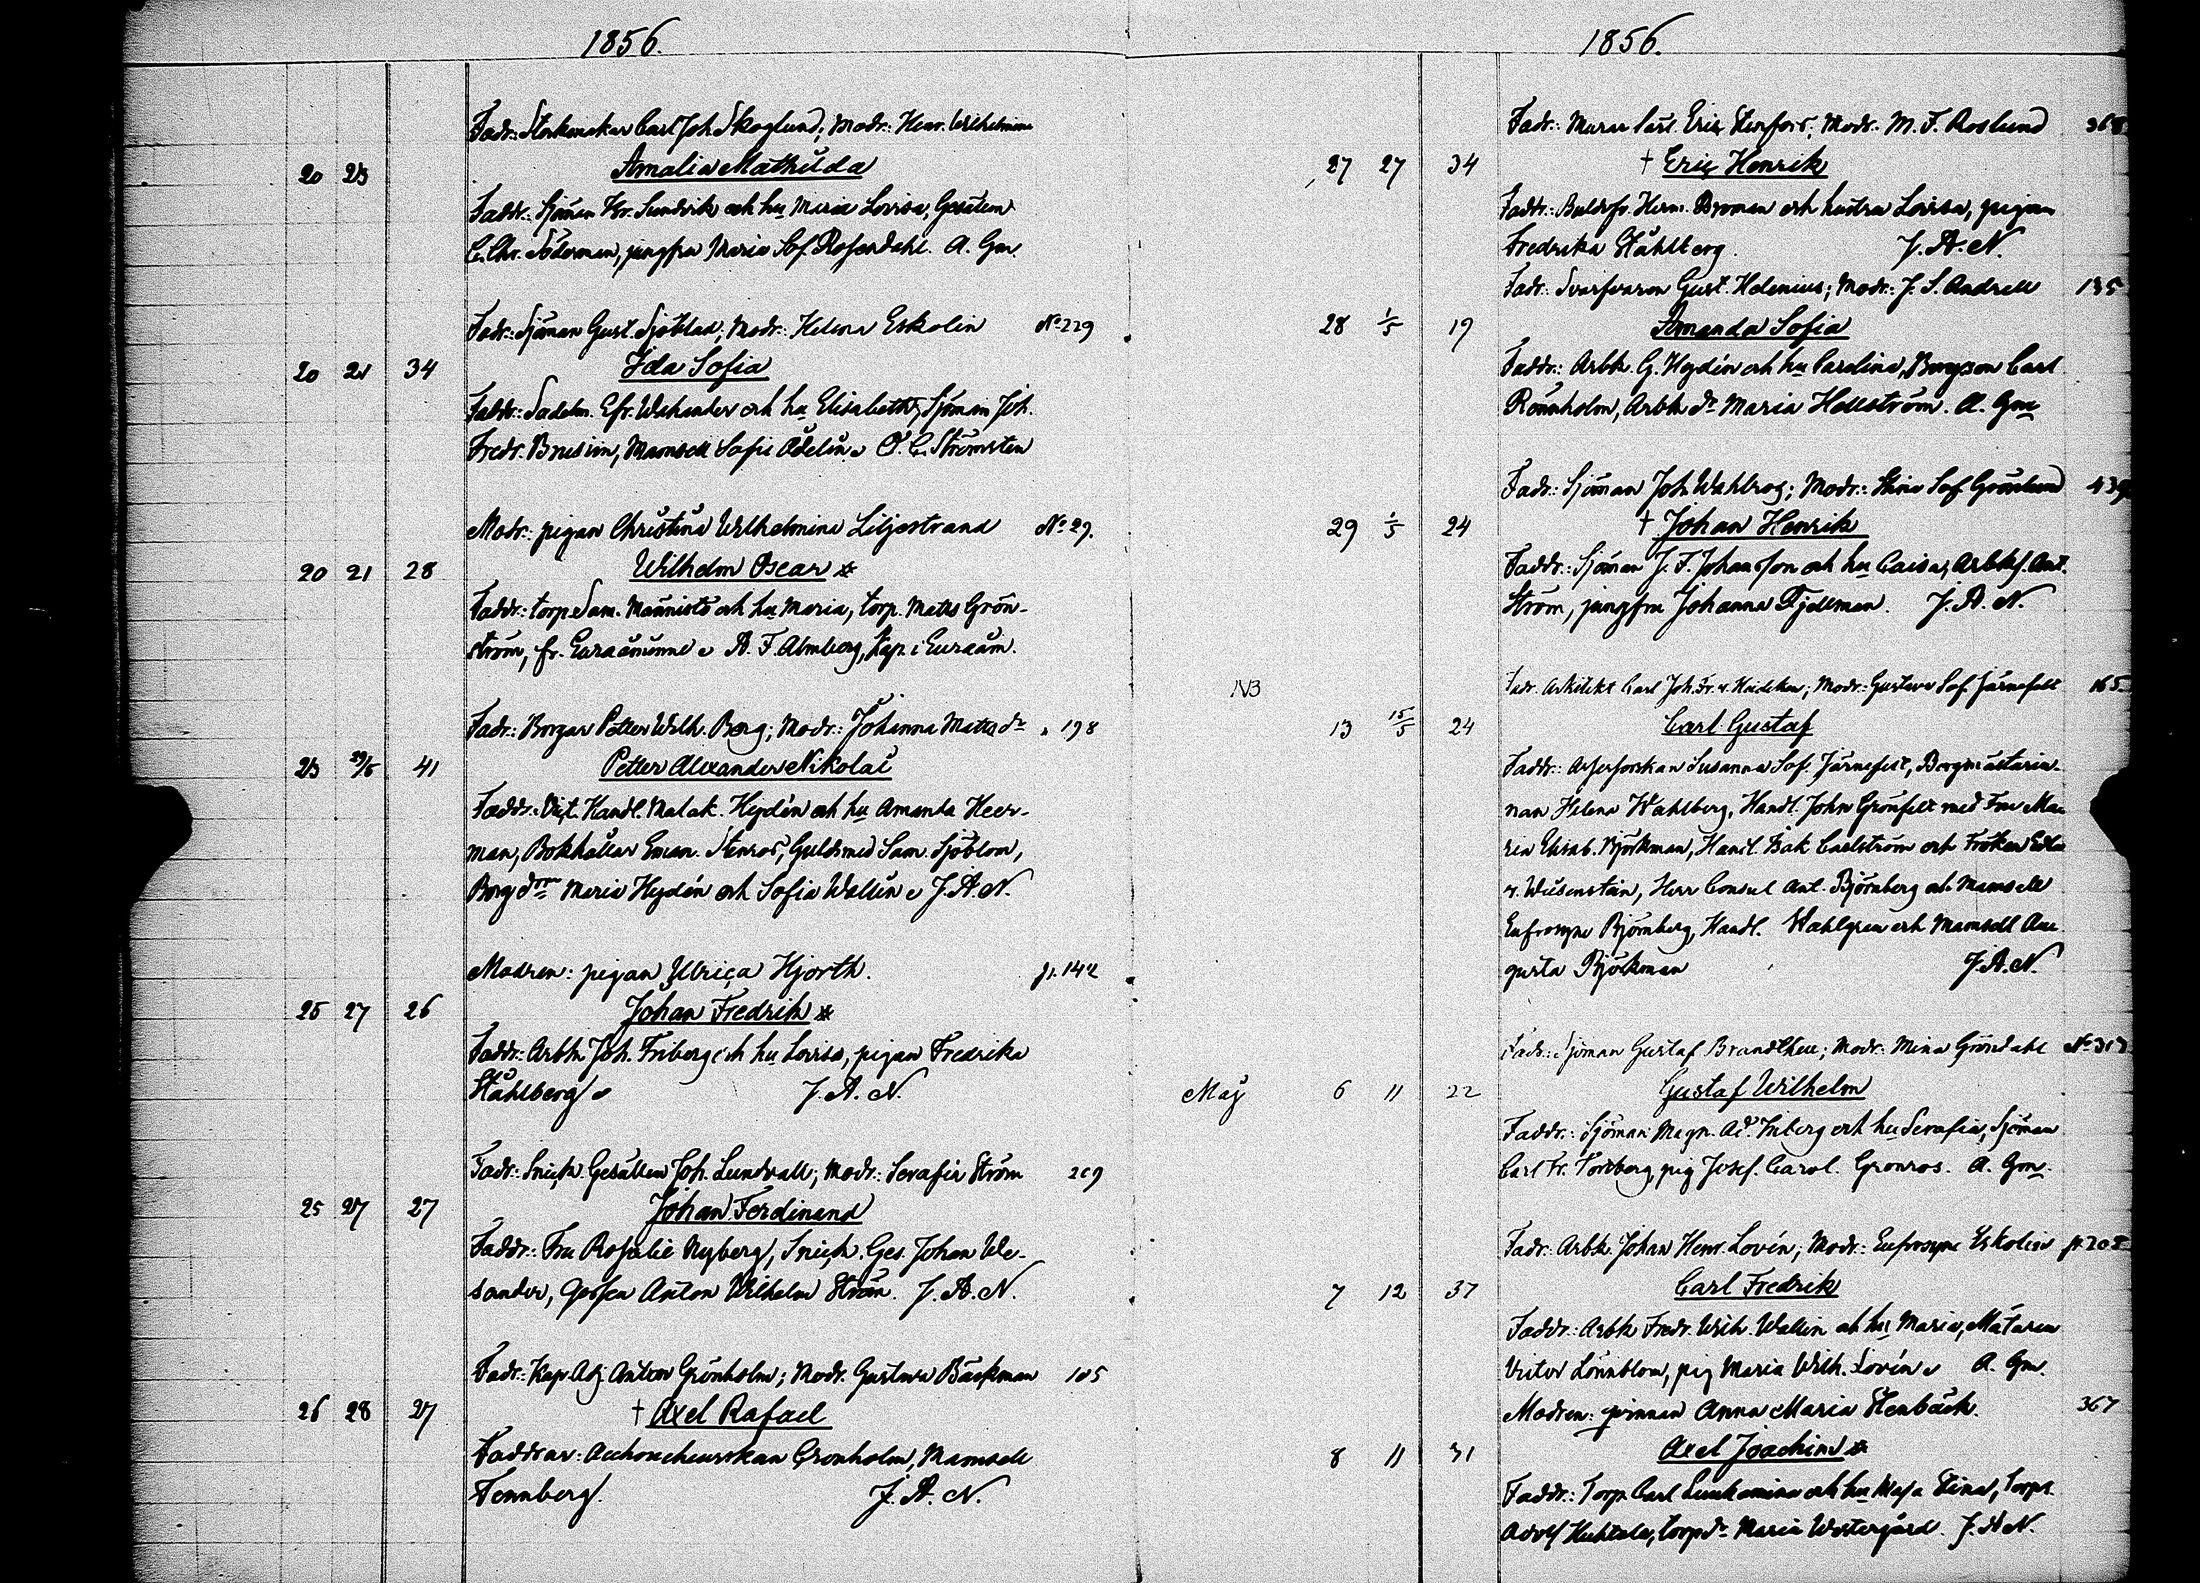 1856.
Fadr: Carl Joh. Skoglund; Modr: Henr. Wilhelmina
20 23 Amalia Mathilda
Faddr: Sjöman Fr. Sundvik och hu Maria Lovisa, Gesällen
C. Chr. Söderman, jungfru Maria Sof. Rosendahl. A. Gm.
Fadr: Sjöman Gust. Sjöblad; Modr: Helena Eskolin No 229
20 21 34 Ida Sofia
Faddr: Sadelm. Efr. Welander och hu Elisabeth, Sjöman Joh.
Fredr. Brusiin, Mamsell Sofie Ådelin O. C. Strömsten
Modr: pigan Christina Wilhelmina Liljestrand No 29.
20 21 28 Wilhelm Oscar *
Faddr: torp. Sam. Mannistö och hu Maria, torp. Matts Grön-
ström, fr. A. F. Almberg, Kap. i Euraåm.
Fadr: Borgar Petter Wilh. Berg; Modr: Johanna Matts dr " 198
23 29/5 41 Petter Alexander Nikolai
Faddr: Vict. Handl. Malak. Heydén och hu Amanda Heer-
man, Bokhållar Eman. Stenros, Guldsmed Sam. Sjöblom,
Borg drar Maria Heydén och Sofia Wallin J. A. N.
Modren: pigan Ulrica Hjorth. p. 142
25 27 26 Johan Fredrik *
Faddr: Arbk. Joh. Friberg och hu Lovisa, pigan Fredrika
Ståhlberg J. A. N.
Fadr: Snick. Gesällen Joh. Lundvall; Modr: Serafia Ström 269
25 27 27 Johan Ferdinand
Faddr: Fru Rosalie Nyberg, Snick. Ges. Johan We-
lander, Gossen Anton Wilhelm Ström. J. A. N.
Fadr: Kap. Adj. Anton Grönholm; Modr. Gustava Bäckman 105
26 28 27 † Axel Rafael
Faddrar: Accoucheurskan Cronholm, Mamsell
Tennberg. J. A. N.
1856.
Fadr: Murar Eric Stenfors; Modr. M. F. Roslund 368
27 27 34 † Eric Henrik
Faddr: Herm. Broman och hustru Lovisa, pigan
Fredrika Ståhlberg. J. A. N.
Fadr: Svarfvaren Gust. Helenius; Modr: J. S. Andrell 135
28 1/5 19 Amanda Sofia
Faddr: Arbk. G. Heydén och hu Carolina, Borgson Carl
Rönnholm, Arbk dr Maria Hellström. A. Gm
Fadr: Sjöman Joh. Wahlroos; Modr: Stina Sof. Grönlund 439
29 1/5 24 † Johan Henrik
Faddr: Sjöman J. F. Johansson och hu Caisa, Arbks. Ant.
Ström, jungfru Johanna Fjellman. J. A. N.
NB
Fadr. Arkitekt Carl Joh. Fr. v. Heideken; Modr: Gustava Sof. Järnefelt 165
13 15/5 24 Carl Gustaf
Faddr: Susanna Sof. Järnefelt, Borgmästarin-
nan Helena Wahlberg, Handl. John Grönfelt med Fru Ma-
ria Elisab. Björkman, Handl. Isak Carlström och Fröken Edla
v. Willebrand, Herr Consul Ant. Björnberg och Mamsell
Eufrosyne Björnberg, Handl. Wahlgren och Mamsell Au-
gusta Björkman J. A. N.
Fadr: Sjöman Gustaf Brandthell; Modr: Mina Gröndahl No 313
Maj 6 11 22 Gustaf Wilhelm
Faddr: Sjöman Magn. Ad. Friberg och hu Serafia, Sjöman
Carl Fr. Forsberg, pig Josef. Carol. Grönros. A. Gm.
Fadr: Arbk. Johan Henr. Lovén; Modr: Eufrosyne Eskolin p. 208
7 12 37 Carl Fredrik
Faddr: Arbk Fredr. Wilh. Wallin och hu Maria, Mätaren
Victor Lönnblom, pig Maria Wilh. Lovén A. Gm.
Modren: pinnan Anna Maria Stenbäck. 367
8 11 31 Axel Joachim *
Faddr: Torp. Carl och hu Maja Stina, Torps.
Adolf Huhtala, torp dr Maria Westergård. J. A. N.